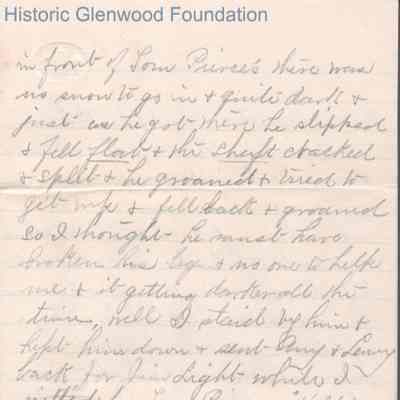 Historic Glenwood Foundation
in front of Tom Pierce's there was
no snow to go in & quite dark &
just as he got there he slipped
& fell flat & the sheft cracked
& split & he groaned & tried to
get up & fell back & groaned
so I thought he must have
broken his leg & no one to help
me & it getting darker all the
time, well I staid by him &
kept him down & sent Amy & Lenny
back for Jim Light while I